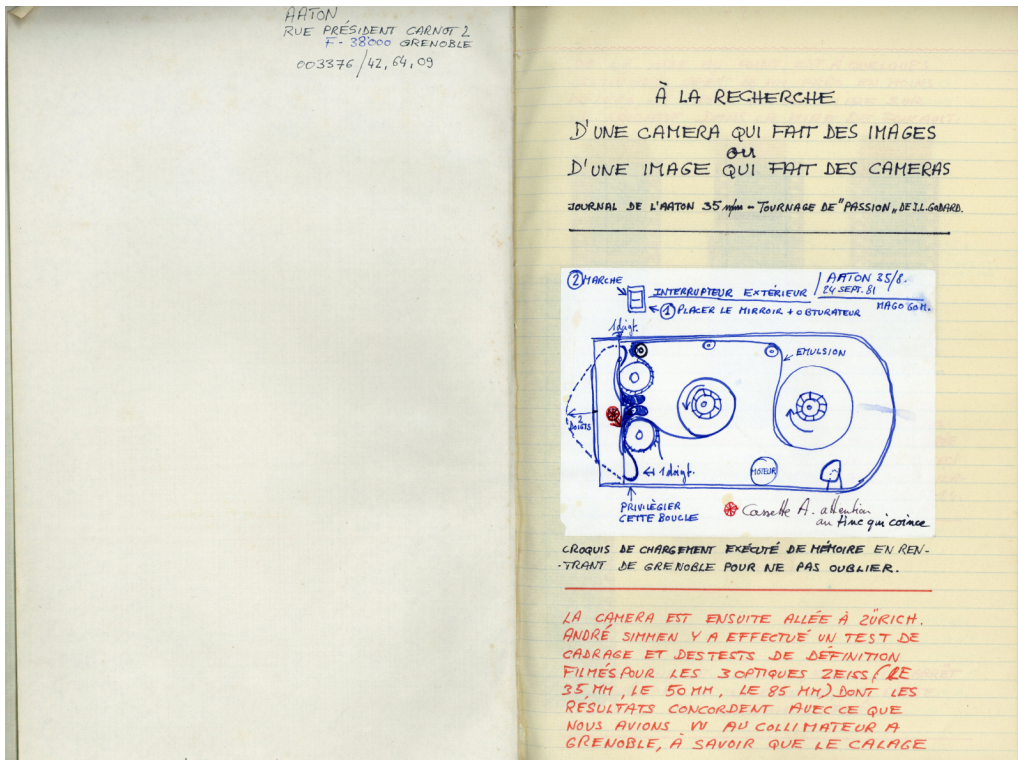 AATON
RUE PRÉSIDENT CARNOT 2
F-38'000 GRENOBLE
003376/42,64,09
À LA RECHERCHE
D'UNE CAMERA QUI FAIT DES IMAGES
OU
D'UNE IMAGE QUI FAIT DES CAMERAS
JOURNAL DE L'AATON 35 m/m - TOURNAGE DE "PASSION" DE J.L. GODARD.
② MARCHE
INTERRUPTEUR EXTÉRIEUR
AATON 35/8.
24 SEPT. 81
MAGO 60 M.
① PLACER LE MIRROIR + OBTURATEUR
1 doigt.
EMULSION
2 DOIGTS
1 doigt.
MOTEUR
PRIVILÈGIER
CETTE BOUCLE
Cassette A. attention
au truc qui coince
CROQUIS DE CHARGEMENT EXÉCUTÉ DE MÉMOIRE EN REN-
-TRANT DE GRENOBLE POUR NE PAS OUBLIER.
LA CAMERA EST ENSUITE ALLÉE À ZÜRICH.
ANDRÉ SIMMEN Y A EFFECTUÉ UN TEST DE
CADRAGE ET DES TESTS DE DÉFINITION
FILMÉS POUR LES 3 OPTIQUES ZEISS (LE
35 MM, LE 50 MM, LE 85 MM) DONT LES
RÉSULTATS CONCORDENT AVEC CE QUE
NOUS AVIONS VU AU COLLIMATEUR A
GRENOBLE, À SAVOIR QUE LE CALAGE